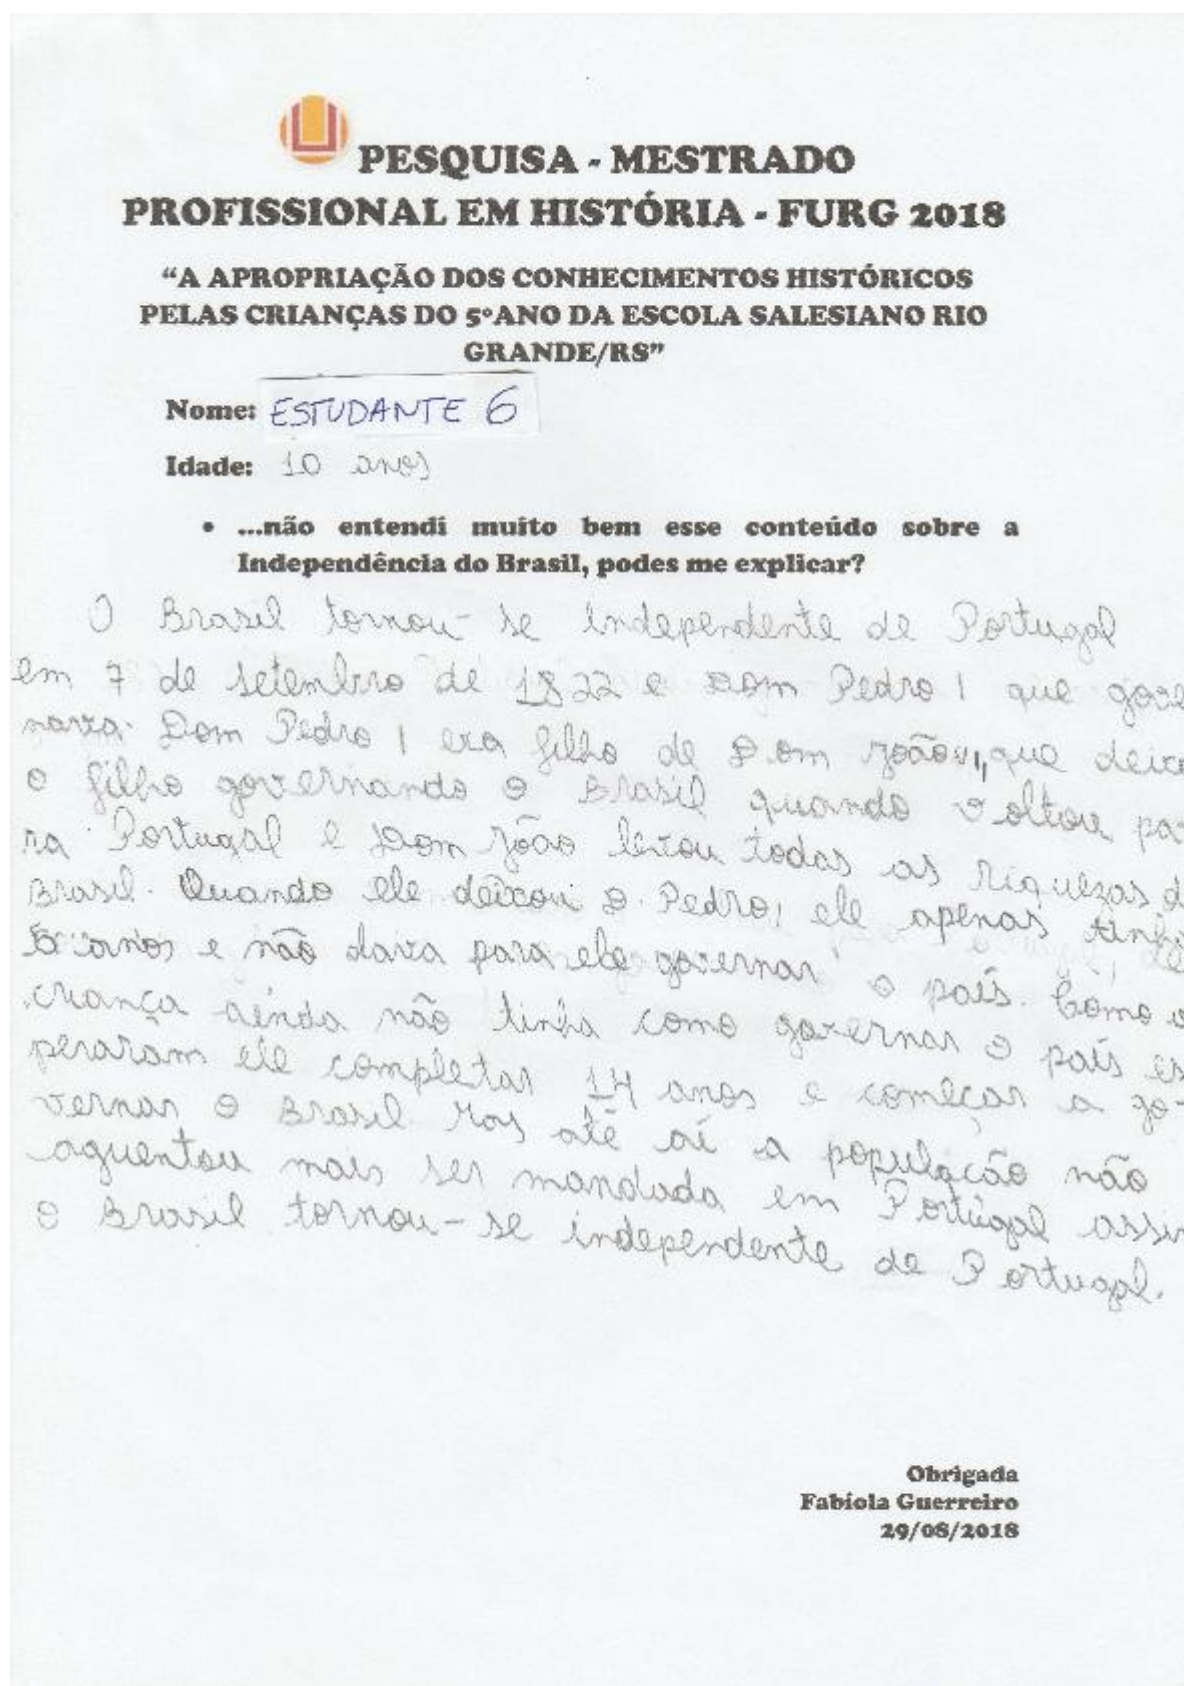 PESQUISA - MESTRADO
PROFISSIONAL EM HISTÓRIA - FURG 2018
“A APROPRIAÇÃO DOS CONHECIMENTOS HISTÓRICOS
PELAS CRIANÇAS DO 5ºANO DA ESCOLA SALESIANO RIO
GRANDE/RS”
Nome: ESTUDANTE 6
Idade: 10 anos
• ...não entendi muito bem esse conteúdo sobre a
Independência do Brasil, podes me explicar?
O Brasil tornou-se independente de Portugal
em 7 de setembro de 1822 e Dom Pedro I que gover
nava. Dom Pedro I era filho de Dom João VI, que deixo
o filho governando o Brasil quando voltou pa
ra Portugal e Dom João levou todas as riquezas d
Brasil. Quando ele deixou D. Pedro, ele apenas tinha
5 anos e não dava para ele governar o país. Como a
criança ainda não tinha como governar o país es
peraram ele completar 14 anos e começar a go-
vernar o Brasil. Mas até aí a população não
aguentou mais ser mandada em Portugal assim
o Brasil tornou-se independente de Portugal.
Obrigada
Fabíola Guerreiro
29/08/2018